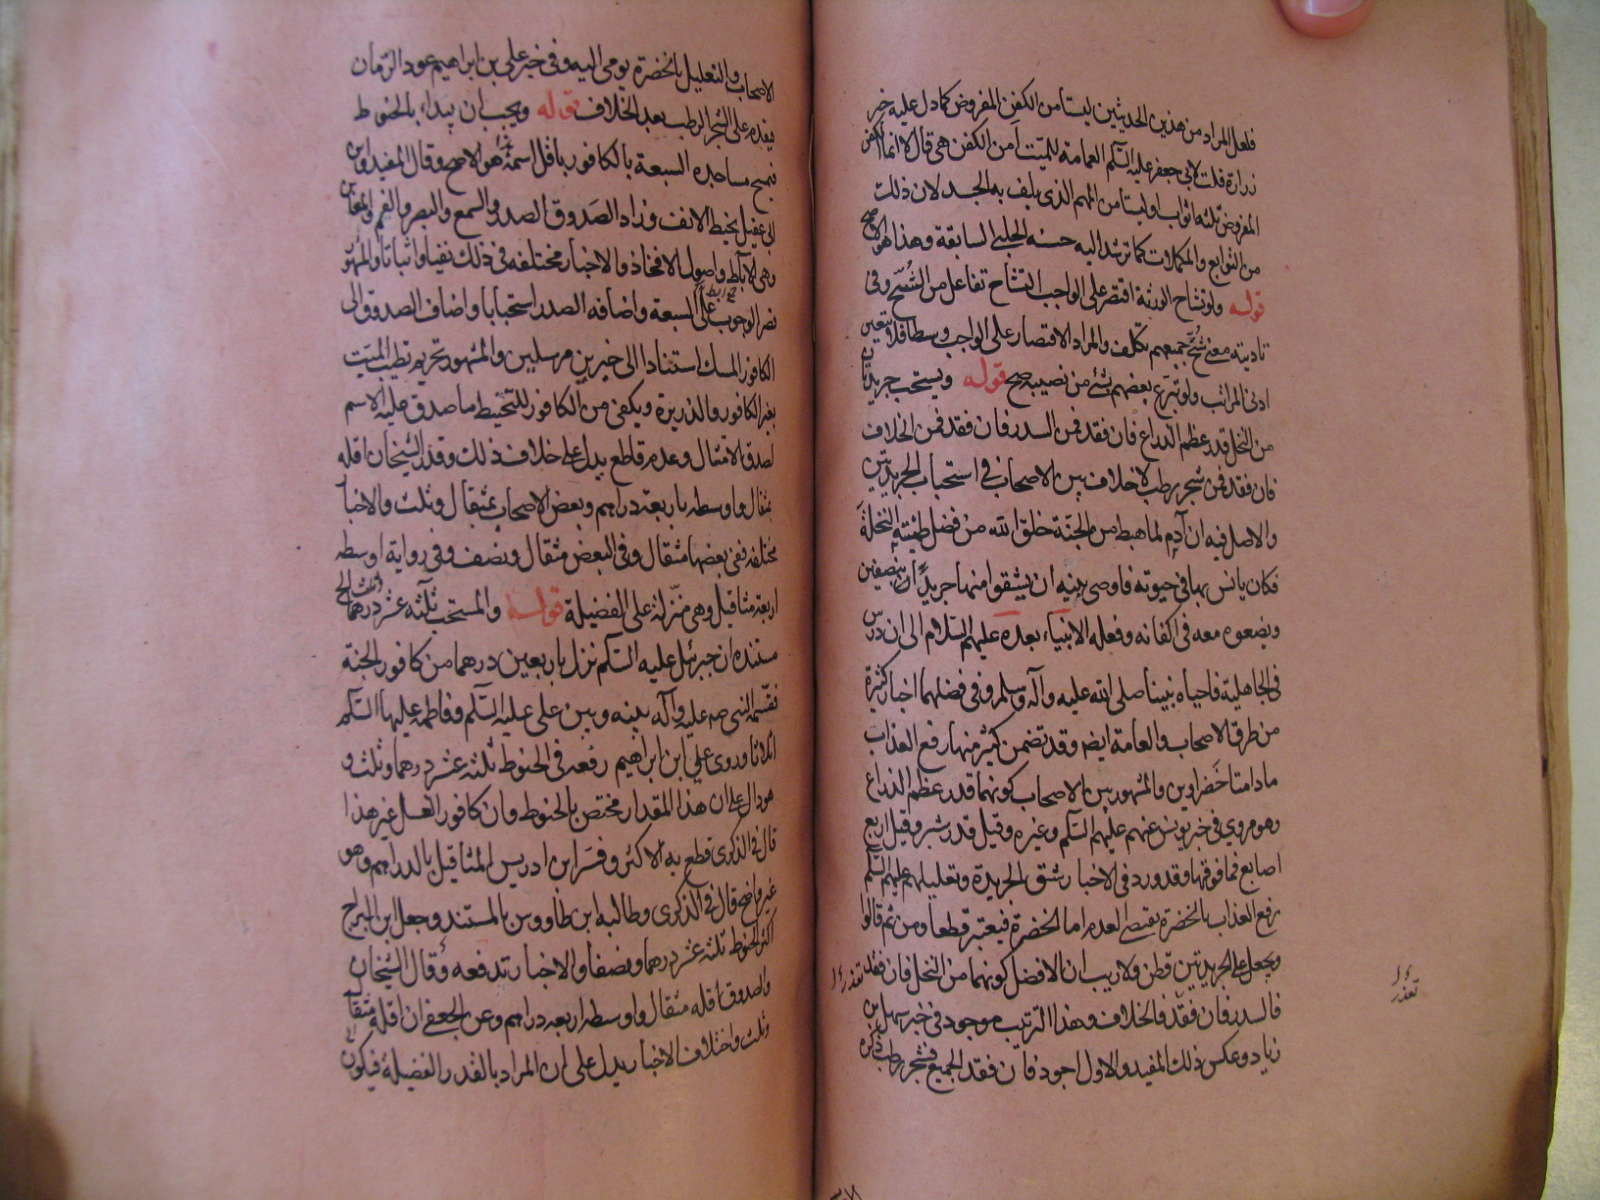 فلعل المراد من هذين الحديثين ليستا من الكفن المفروض كما دل عليه خبر
زرارة قلت لابي جعفر عليه السلم العمامة للميت أمن الكفن هي قال لا انما الكفن
المفروض ثلثة اثواب وليستا من المهم الذي يلف به الجسد لان ذلك
من التوابع والمكملات كما ترشد اليه حسنة الحلبي السابقة وهذا هو الاصح
قوله ولو تشاح الورثة اقتصر على الواجب التشاح تفاعل من الشح وفي
تاديته معنى شح جميعهم تكلف والمراد الاقتصار على الواجب وسطا فلا يتعين
ادنى المراتب ولو تبرع بعضهم بشئ من نصيبه صح قوله ويستحب جريدتان
من النخل قدر عظم الذراع فان فقد فمن السدر فان فقد فمن الخلاف
فان فقد فمن شجر رطب لا خلاف بين الاصحاب في استحباب الجريدتين
والاصل فيه ان آدم لما هبط من الجنة خلق الله من فضل طينته النخلة
فكان يانس بها في حيوته فاوصى بنيه ان يشقوا منها جريدا بنصفين
ويضعوه معه في اكفانه وفعله الانبياء بعده عليهم السلام الى ان درس
في الجاهلية فاحياه نبينا صلى الله عليه وآله وسلم وفي فضلهما اخبار كثيرة
من طرق الاصحاب والعامة ايضه وقد تضمن كثير منها رفع العذاب
ما دامتا خضراوين والمشهور بين الاصحاب كونهما قدر عظم الذراع
وهو مروي في خبر يونس عنهم عليهم السلم وغيره وقيل قدر شبر وقيل اربع
اصابع فما فوقها وقد ورد في الاخبار شق الجريدة وتعليلهم عليهم السلم
رفع العذاب بالخضرة يقتضي العدم اما الخضرة فيعتبر قطعا ومن ثم قالوا
ويجعل على الجريدتين قطن ولا ريب ان الافضل كونهما من النخل فان فقد تعذر
تعذر
فالسدر فان فقد فالخلاف وهذا الترتيب موجود في خبر سهل بن
زياد وعكس ذلك المفيد والاول اجود فان فقد الجميع فشجر رطب ذكره
الاصحاب والتعليل بالخضرة يومي اليه وفي خبر علي بن ابراهيم عود الرمان
يقدم على الشجر الرطب بعد الخلاف قوله ويجب ان يبداء بالحنوط
فيمسح مساجده السبعة بالكافور باقل اسمه هو الاصح وقال المفيد وابن
ابي عقيل يحيط الانف وزاد الصدوق الصدر والسمع والبصر والفم والمغابن
وهي الاباط واصول الافخاذ والاخبار مختلفة في ذلك نفيا واثباتا والمشهور
قصر الوجوب على السبعة واضافة الصدر استحبابا واضاف الصدوق الى
الكافور المسك استنادا الى خبرين مرسلين والمشهور تحريم تطيب الميت
بغير الكافور والذريرة ويكفي من الكافور للتحنيط ما صدق عليه الاسم
لصدق الامتثال وعدم قاطع يدل على خلاف ذلك وقدر الشيخان اقله
بمثقال واوسطه باربعة دراهم وبعض الاصحاب بمثقال وثلث والاخبار
مختلفه ففي بعضها مثقال وفي البعض مثقال ونصف وفي رواية اوسطه
اربعة مثاقيل وهي منزلة على الفضيلة قوله والمستحب ثلثة عشر درهما وثلث الخ
مستنده ان جبرئيل عليه السلم نزل باربعين درهما من كافور الجنة
فقسمه النبي صه عليه وآله بينه وبين علي عليه السلم وفاطمة عليها السلم
اثلاثا وروى علي ابن ابراهيم رفعه في الحنوط ثلثة عشر درهما وثلث و
هو دال على ان هذا المقدار مختص بالحنوط وان كافور الغسل غير هذا
قال في الذكرى قطع به الاكثر وفسر ابن ادريس المثاقيل بالدراهم وهو
غير واضح قال في الذكرى وطالبه ابن طاووس بالمستند وجعل ابن البراج
اكثر الحنوط ثلثة عشر درهما ونصفا والاخبار تدفعه وقال الشيخان
والصدوق اقله مثقال واوسطه اربعة دراهم وعن الجعفي ان اقله مثقال
وثلث واختلاف الاخبار يدل على ان المراد بالقدر الفضيلة فيكون